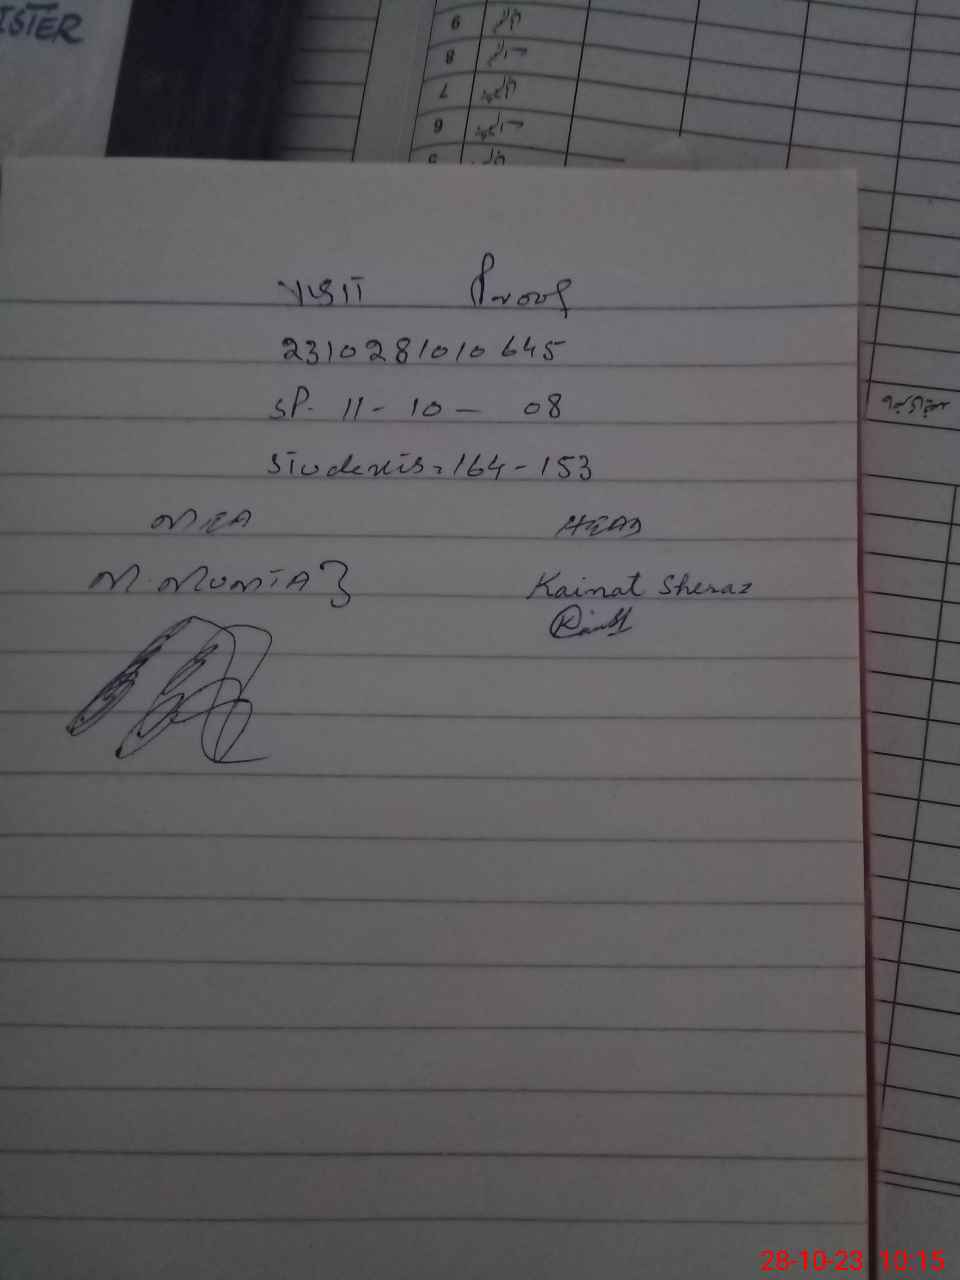 ISTER
9
8
7
6
5
VISIT Proof
2310281010645
SP. 11 - 10 - 08
Students = 164 - 153
MEA HEAD
M. MUMTAZ Kainat Sheraz
28-10-23 10:15